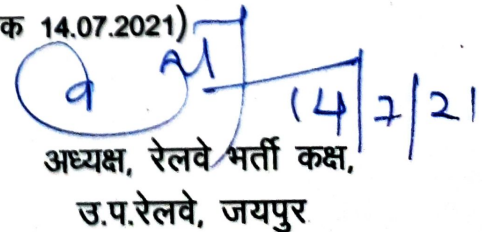 क 14.07.2021)
14/7/21
अध्यक्ष, रेलवे भर्ती कक्ष,
उ.प.रेलवे, जयपुर